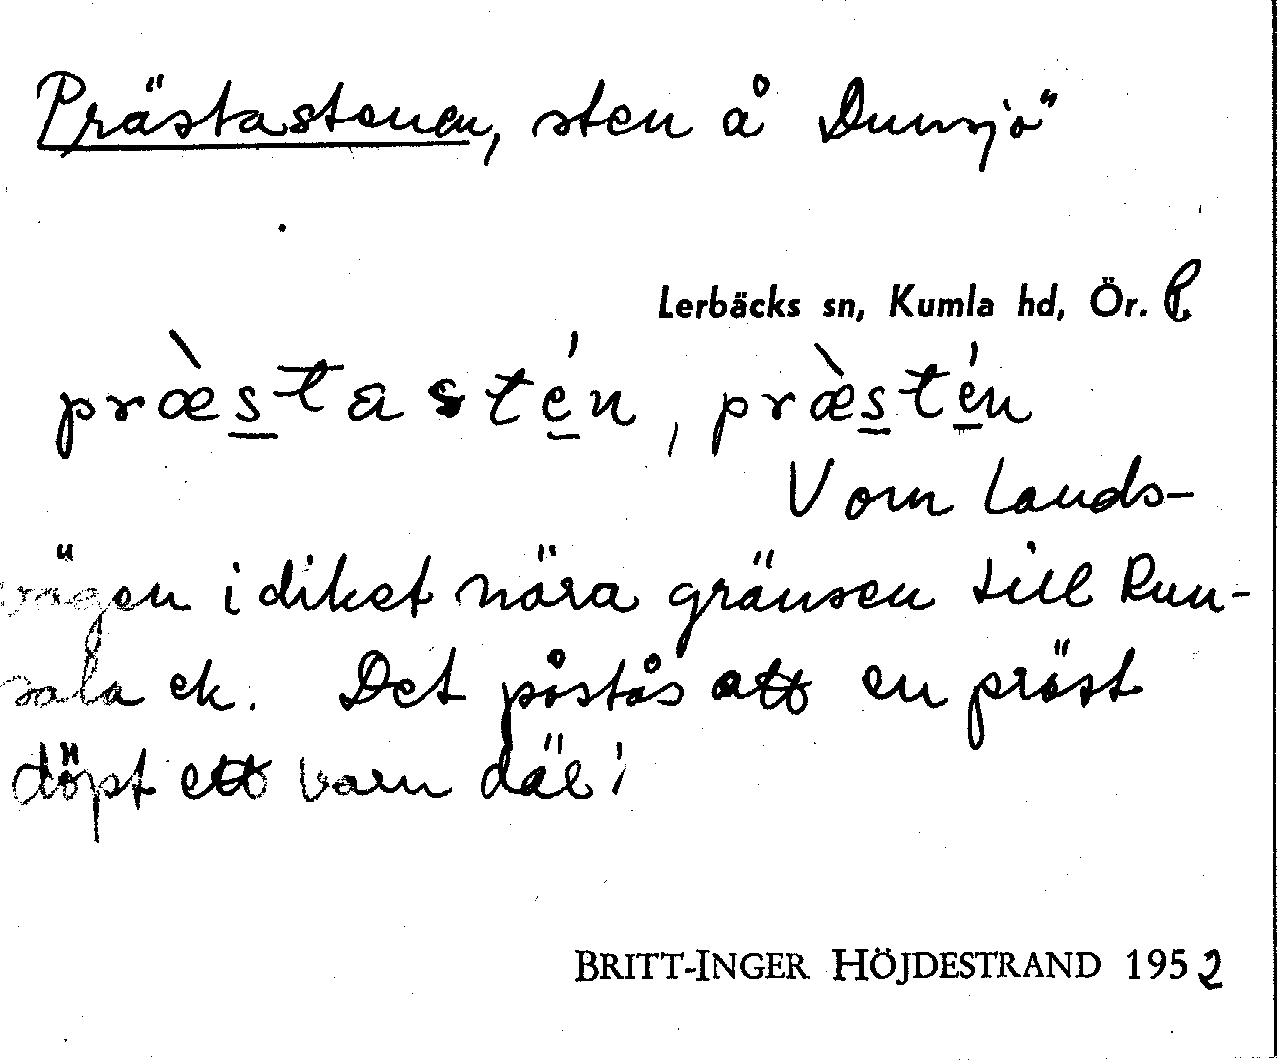 Prästastenen, sten å Dunsjö
Lerbäcks sn, Kumla hd, Ör. l.
præ̀stastén, præ̀stén
V om lands-
vägen i diket nära gränsen till Run-
sala ek. Det påstås att en präst
döpt ett barn där!
BRITT-INGER HÖJDESTRAND 1952